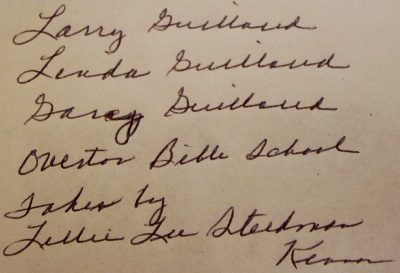 Larry Guilloud
Linda Guilloud
Garey Guilloud
Overton Bible School
Taken by
Lillie Lee Steedman
Kennon